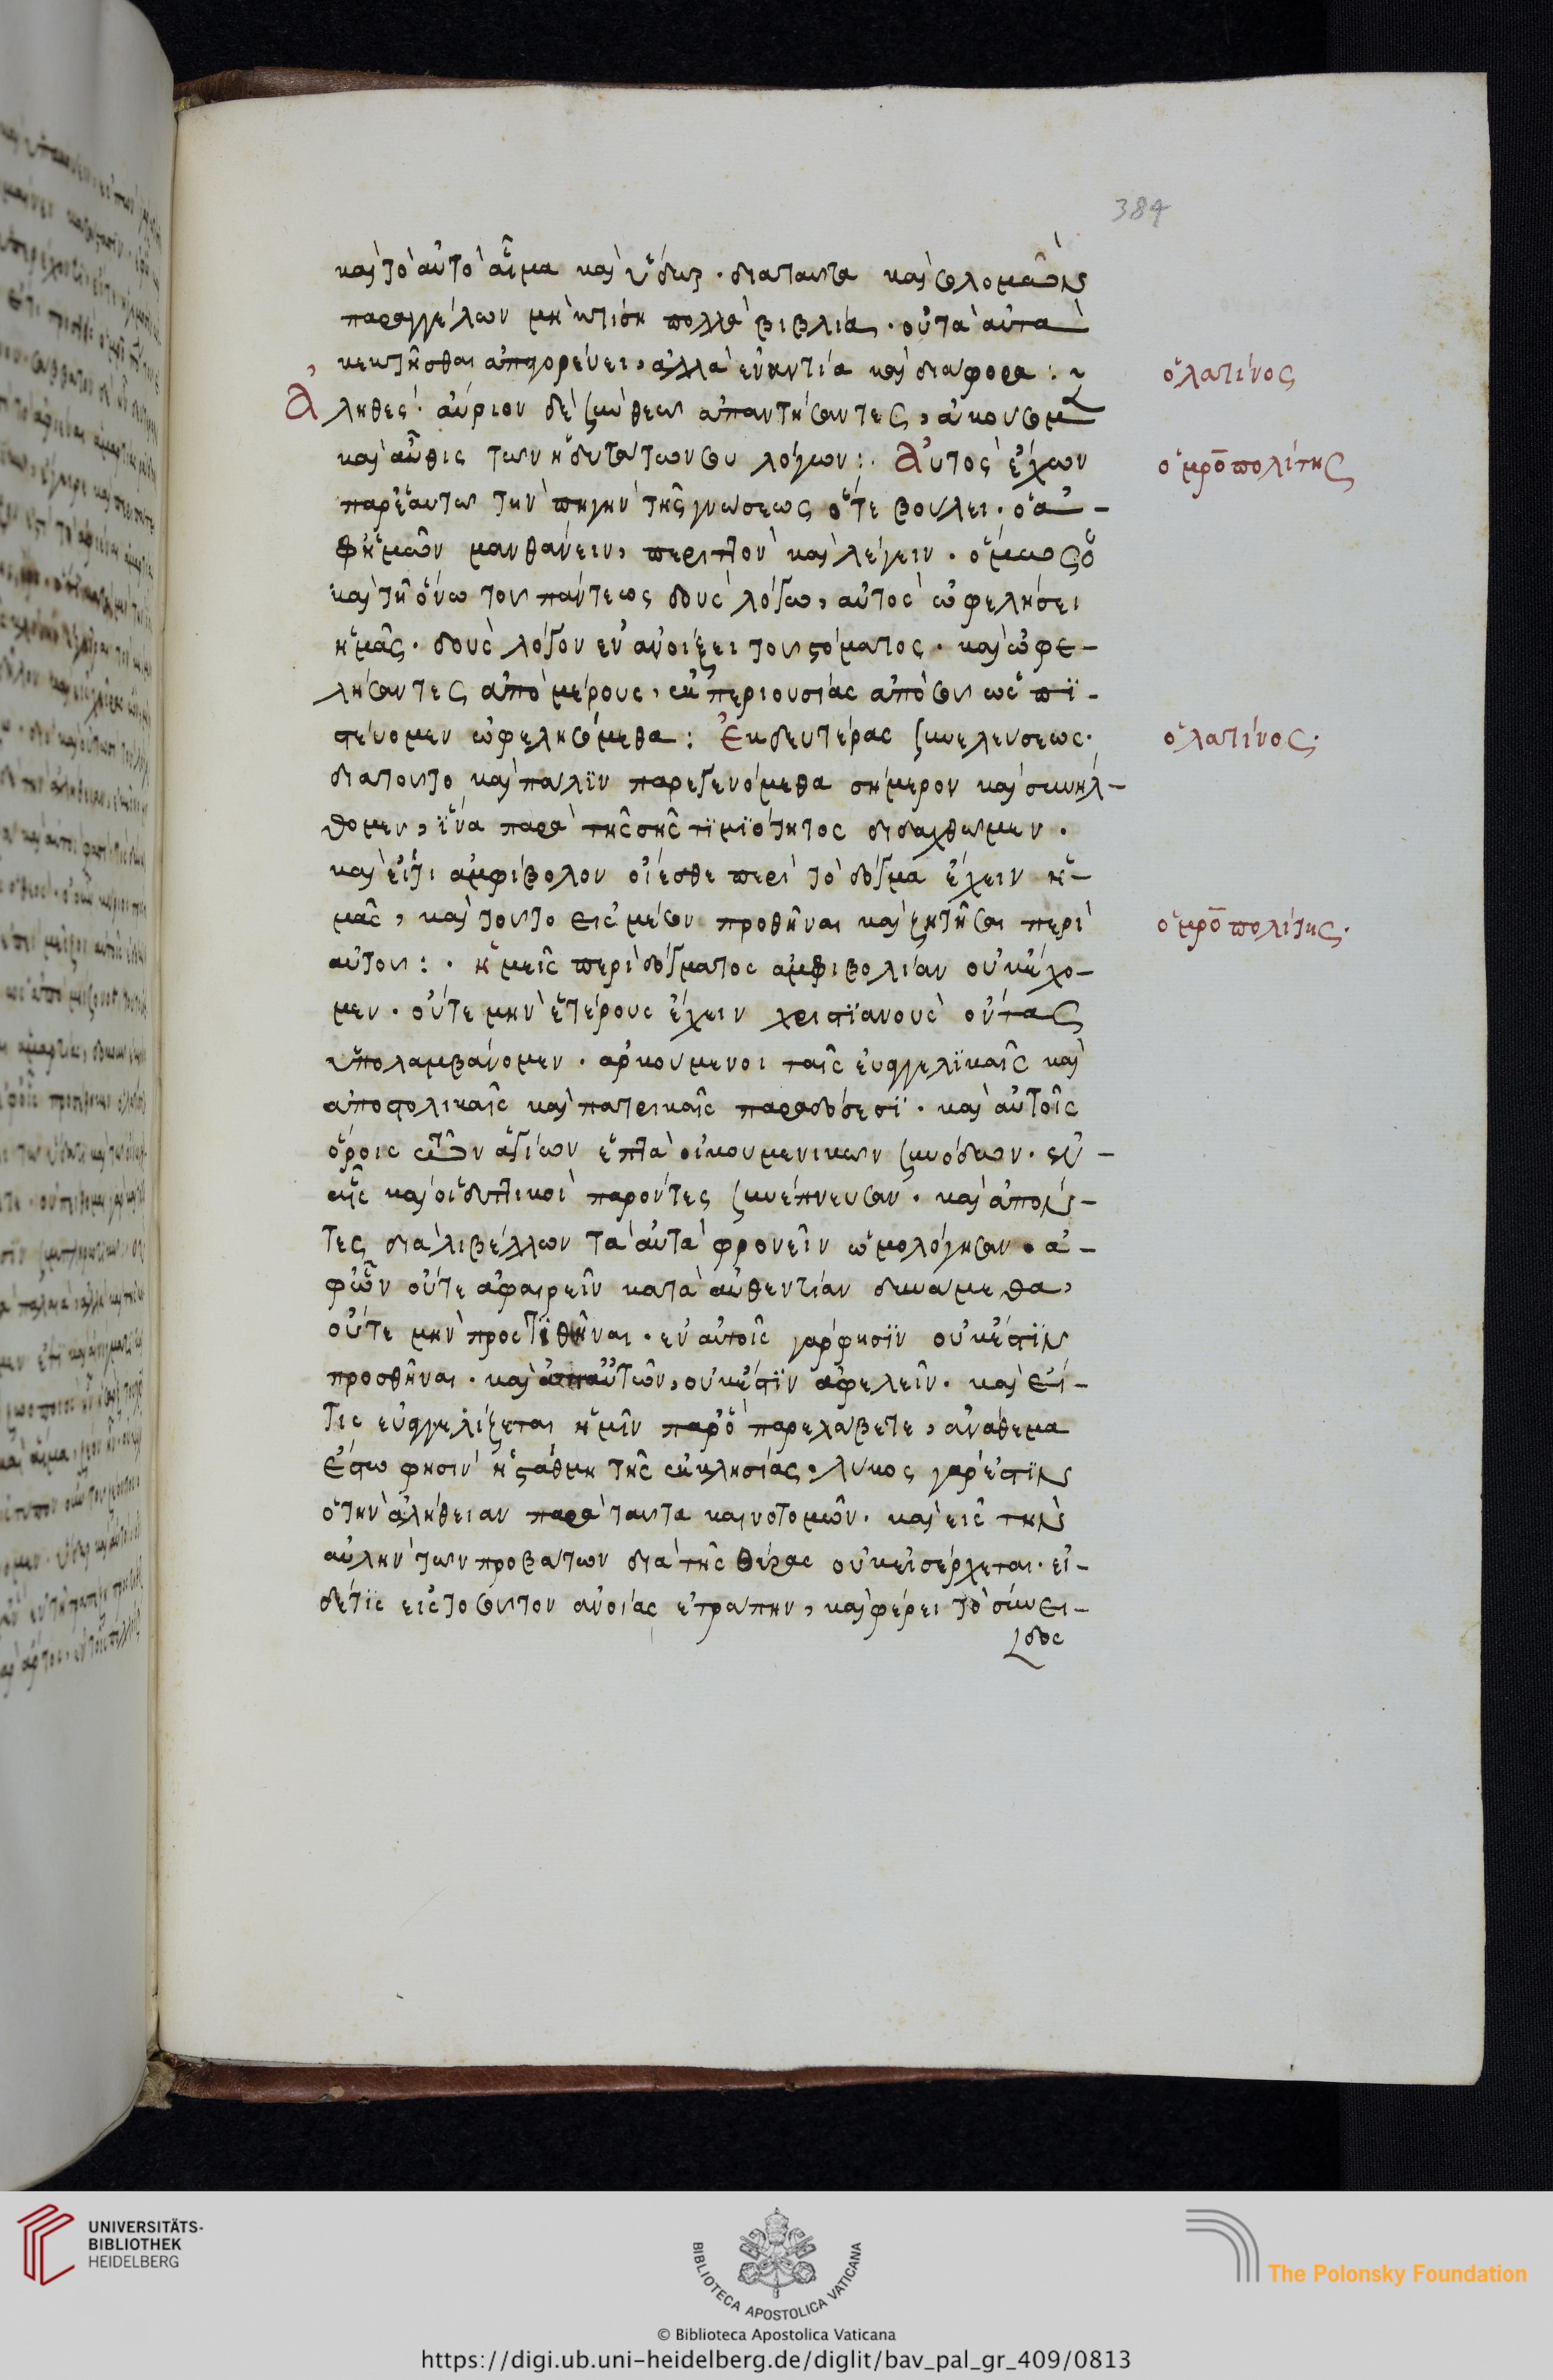 384
καὶ τὸ αὐτὸ αἷμα καὶ ὕδωρ · διαταυτα καὶ σολομῶν
παραγγέλων μὴ κτίση πολλὰ βιβλία · οὐ τὰ αὐτὰ
κεκτῆσθαι ἀπαγορεύει, ἀλλὰ ἐναντία καὶ διάφορα :
ὁ λατίνος
Ἀληθες · αὔριον δὲ ξυνθεω ἀπαντήσαντες, ἀκουσομεν
καὶ αὖθις των ἡδυτάτων σου λόγων : Αὐτὸς ἔχων
ὁ μρο̅πολίτης
παρ' ἑαυτω την πηγην τῆς γνώσεως ὅτε βούλει · ὃ ἀ-
φ' ἡμῶν μανθάνειν, περιττὸν καὶ λέγειν · ὅμως ὁ
καὶ τῆ ὄνω του παντεως δους λόγω, αὐτὸς ὠφελήσει
ἡμᾶς · δους λόγον ἐν ἀνοίξει του στόματος · καὶ ὠφε-
λήσαντες ἀπὸ μέρους, ἐκ περιουσίας ἀπὸ σου ὡς πϊ-
στεύομεν ὠφελησόμεθα : Ἐκ δευτέρας ξυνελευσεως ·
ὁ λατίνος ·
διατουτο καὶ παλϊν παρεγενόμεθα σήμερον καὶ συνήλ-
θομεν, ἵνα παρὰ τῆς σῆς τϊμϊότητος διδαχθωμεν ·
καὶ εἴ τι ἀμφίβολον οἴεσθε περὶ τὸ δόγμα ἔχειν ἡ-
μᾶς, καὶ τουτο εἰς μέσον προθῆναι καὶ ζητῆσαι περὶ
ὁ μρο̅πολίτης ·
αὐτου : · ἡμεῖς περὶ δόγματος ἀμφιβολίαν οὐκ ἔχο-
μεν · οὔτε μὴν ἑτέρους ἔχειν χριστϊανοὺς ὄντας
ὑπολαμβάνομεν · ἀρκουμενοι ταῖς εὐαγγελϊκαῖς καὶ
ἀποστολικαῖς καὶ πατρικαῖς παραδόσεσϊ · καὶ αὐτοῖς
ὅροις τῶν ἁγίων ἑπτὰ οἰκουμενικων ξυνόδων · ἐν
αἷς καὶ οἱ δυτικοὶ παρόντες ξυνέπνευσαν · καὶ ἀπόν-
τες διὰ λιβέλλων τὰ αὐτὰ φρονεῖν ὡμολόγησαν · ἀ-
φ' ὧν οὔτε ἀφαιρεῖν κατὰ αὐθεντίαν δυναμεθα,
οὔτε μὴν προςτϊθῆναι · ἐν αὐτοῖς γάρ φησϊν οὐκ ἔστϊν
προσθῆναι · καὶ ἀπ' αὐτῶν, οὐκ ἔστϊν ἀφελεῖν · καὶ εἴ-
τις εὐαγγελίζεται ἡμῖν παρ' ὃ παρελάβετε, ἀνάθεμα
ἔστω φησιν ἡ στάθμη τῆς ἐκκλησίας · λυκος γάρ ἐστϊν
ὁ τὴν ἀλήθειαν παρὰ ταυτα καινοτομῶν · καὶ εἰς τὴν
αὐλὴν των προβάτων διὰ τῆς θύρας οὐκ εἰσέρχεται · εἰ-
δέτϊς εἰς τοσουτον ἀνοίας ἐτράπην, καὶ φέρει τὸ σύνει-
δος
UNIVERSITÄTS-
BIBLIOTHEK
HEIDELBERG
BIBLIOTECA APOSTOLICA VATICANA
The Polonsky Foundation
© Biblioteca Apostolica Vaticana
https://digi.ub.uni-heidelberg.de/diglit/bav_pal_gr_409/0813